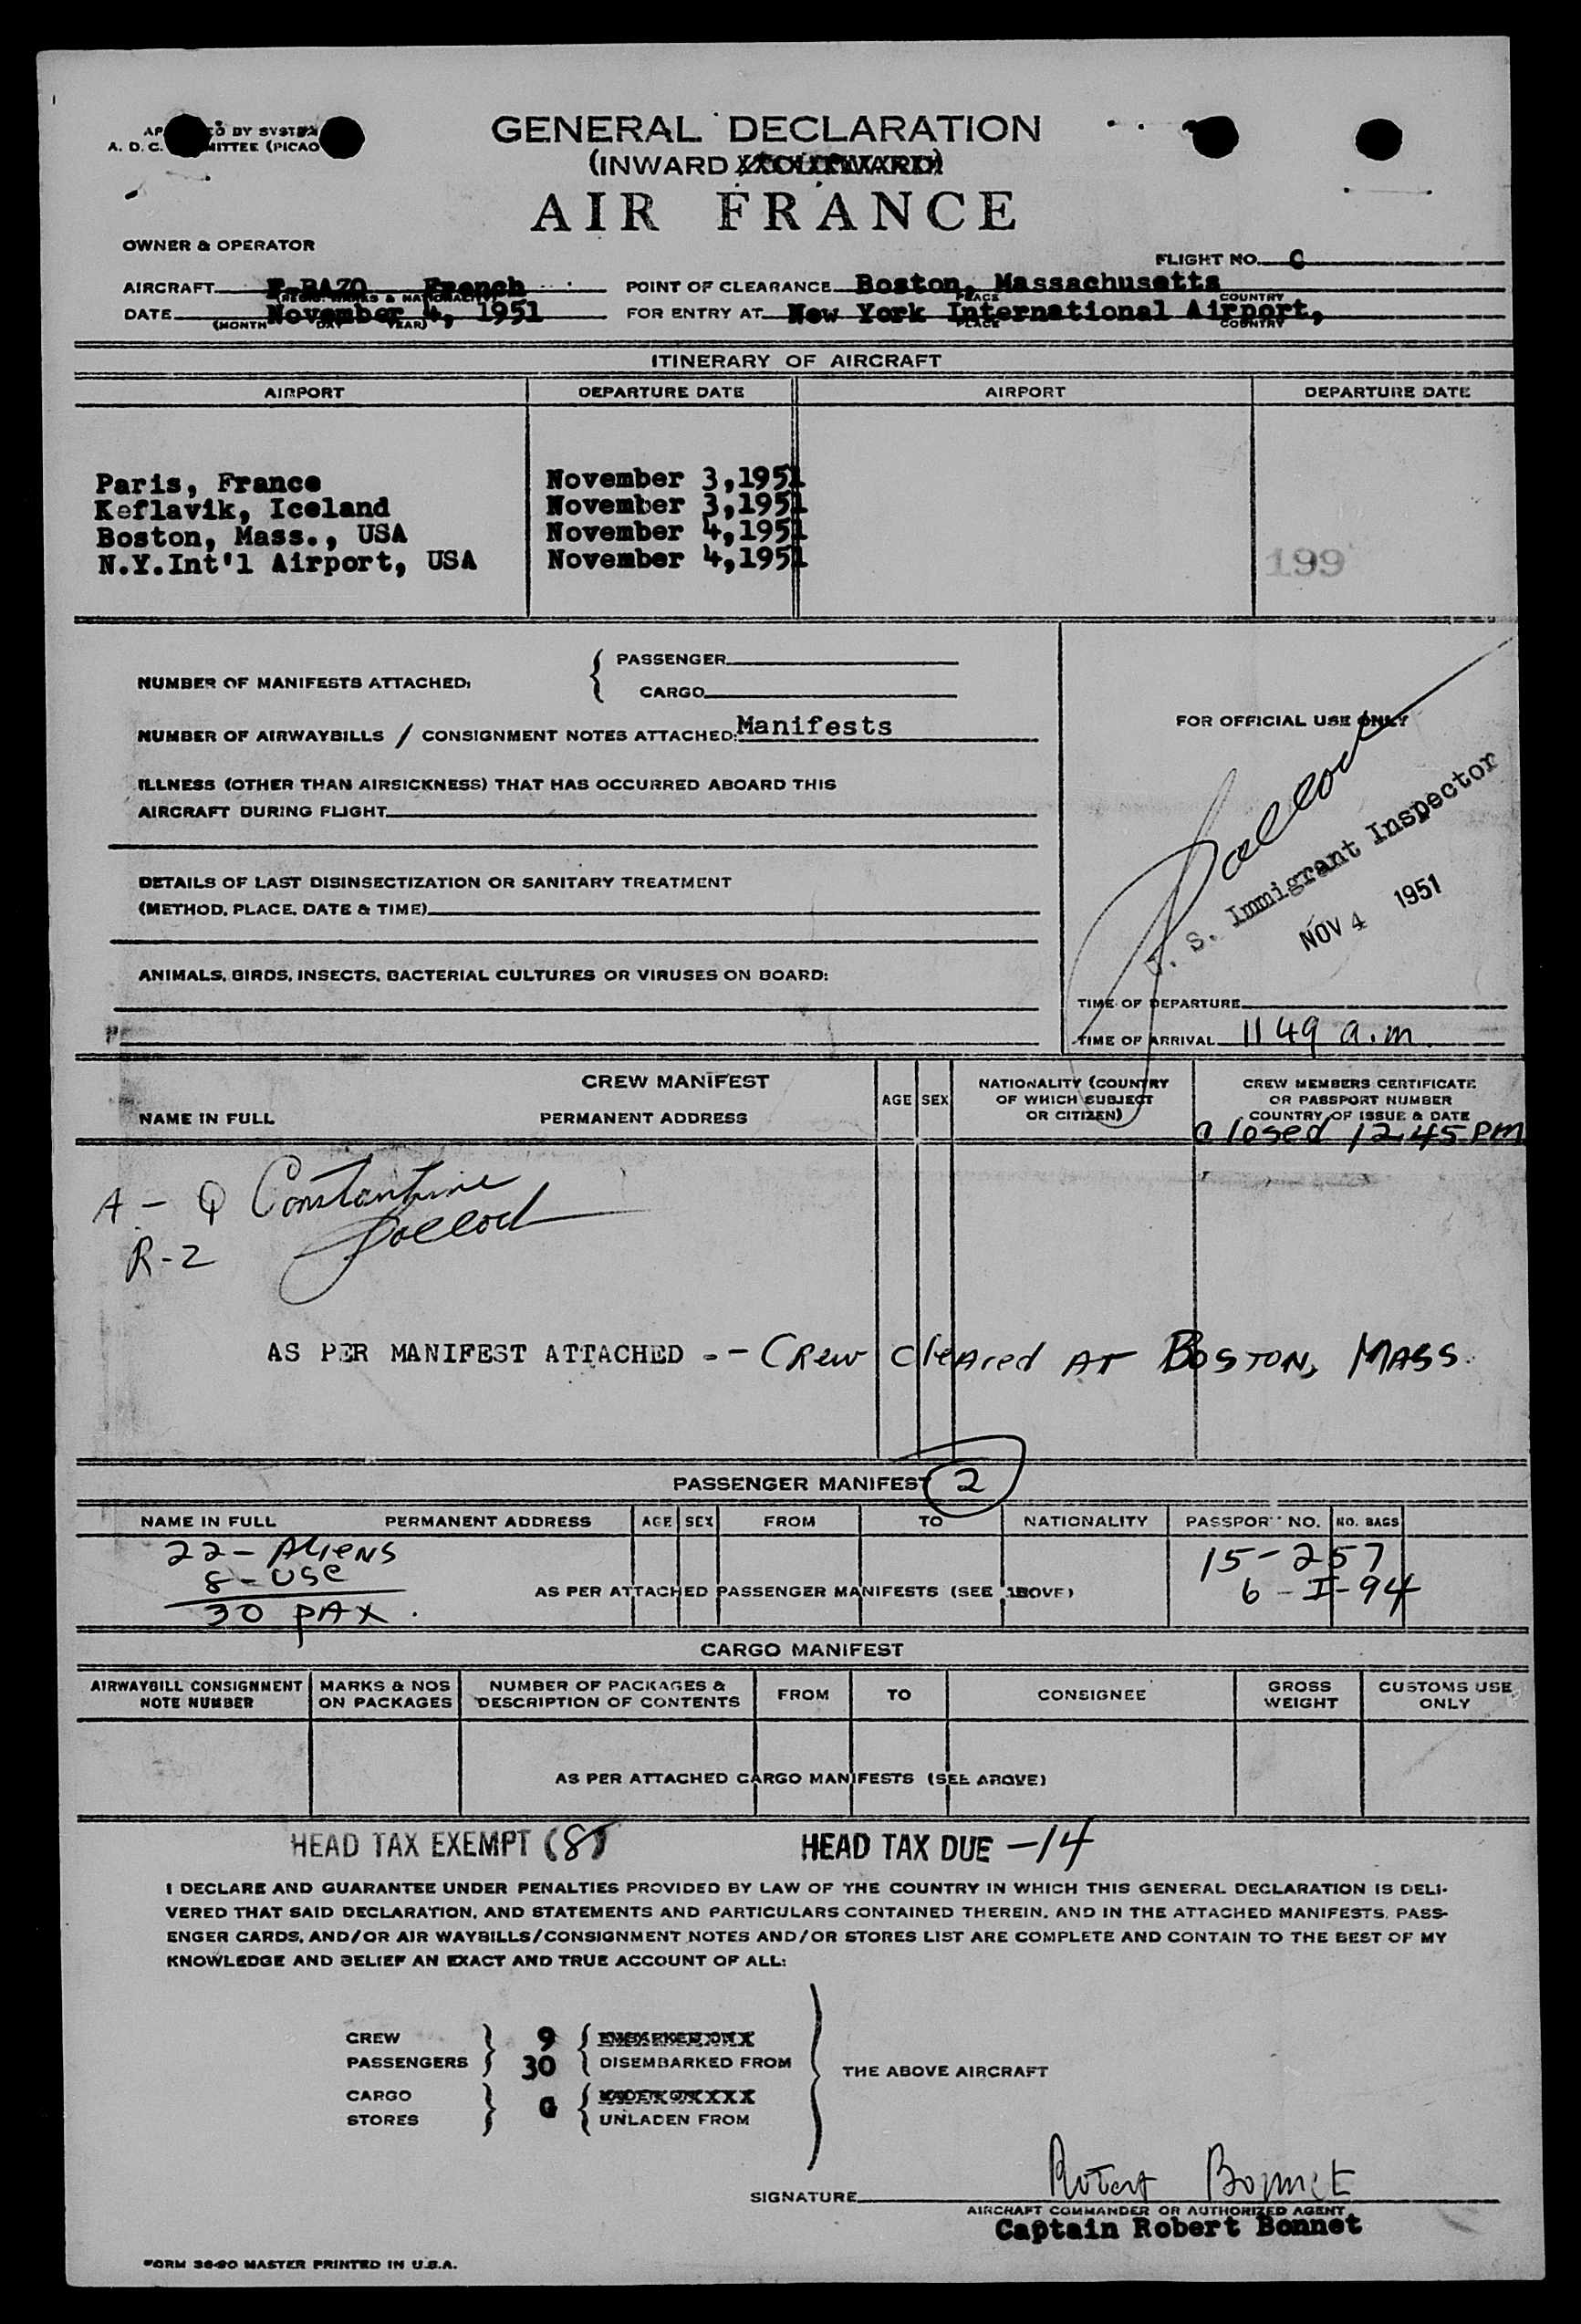 GENERAL DECLARATION
(INWARD
AIR FRANCE
OWNER & OPERATOR
FLIGHT NO. C
AIRCRAFT F-BAZO French POINT OF CLEARANCE Boston, Massachusetts
DATE November 4, 1951 FOR ENTRY AT New York International Airport,
ITINERARY OF AIRCRAFT
AIRPORT DEPARTURE DATE AIRPORT DEPARTURE DATE
Paris, France November 3,1951
Keflavik, Iceland November 3,1951
Boston, Mass., USA November 4,1951
N.Y.Int'l Airport, USA November 4,1951
199
NUMBER OF MANIFESTS ATTACHED: { PASSENGER
CARGO
NUMBER OF AIRWAYBILLS / CONSIGNMENT NOTES ATTACHED: Manifests
FOR OFFICIAL USE ONLY
ILLNESS (OTHER THAN AIRSICKNESS) THAT HAS OCCURRED ABOARD THIS
AIRCRAFT DURING FLIGHT
DETAILS OF LAST DISINSECTIZATION OR SANITARY TREATMENT
(METHOD, PLACE, DATE & TIME)
ANIMALS, BIRDS, INSECTS, BACTERIAL CULTURES OR VIRUSES ON BOARD:
U. S. Immigrant Inspector
NOV 4 1951
TIME OF DEPARTURE
TIME OF ARRIVAL 11 49 a.m.
CREW MANIFEST
NAME IN FULL PERMANENT ADDRESS AGE SEX NATIONALITY (COUNTRY OF WHICH SUBJECT OR CITIZEN) CREW MEMBERS CERTIFICATE OR PASSPORT NUMBER COUNTRY OF ISSUE & DATE
Closed 12.45 PM
A - Q Constantine
R-2
AS PER MANIFEST ATTACHED -- Crew Cleared AT BOSTON, MASS.
PASSENGER MANIFEST 2
NAME IN FULL PERMANENT ADDRESS AGE SEX FROM TO NATIONALITY PASSPORT NO. NO. BAGS
22 - Aliens
8 - USC
30 PAX.
15 - 257
6 - I - 94
AS PER ATTACHED PASSENGER MANIFESTS (SEE ABOVE)
CARGO MANIFEST
AIRWAYBILL CONSIGNMENT NOTE NUMBER MARKS & NOS ON PACKAGES NUMBER OF PACKAGES & DESCRIPTION OF CONTENTS FROM TO CONSIGNEE GROSS WEIGHT CUSTOMS USE ONLY
AS PER ATTACHED CARGO MANIFESTS (SEE ABOVE)
HEAD TAX EXEMPT (8) HEAD TAX DUE -14
I DECLARE AND GUARANTEE UNDER PENALTIES PROVIDED BY LAW OF THE COUNTRY IN WHICH THIS GENERAL DECLARATION IS DELI-
VERED THAT SAID DECLARATION, AND STATEMENTS AND PARTICULARS CONTAINED THEREIN, AND IN THE ATTACHED MANIFESTS, PASS-
ENGER CARDS, AND/OR AIR WAYBILLS/CONSIGNMENT NOTES AND/OR STORES LIST ARE COMPLETE AND CONTAIN TO THE BEST OF MY
KNOWLEDGE AND BELIEF AN EXACT AND TRUE ACCOUNT OF ALL:
CREW 9
PASSENGERS 30 DISEMBARKED FROM
THE ABOVE AIRCRAFT
CARGO
STORES UNLADEN FROM
SIGNATURE Robert Bonnet
AIRCRAFT COMMANDER OR AUTHORIZED AGENT
Captain Robert Bonnet
FORM 36-90 MASTER PRINTED IN U.S.A.